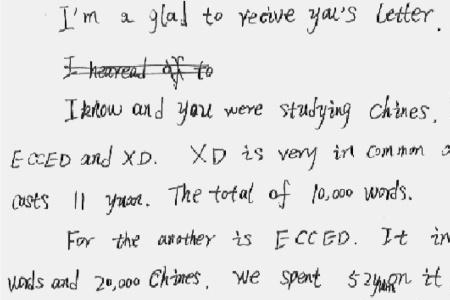 I'm a glad to recive you's letter.
I hearead of to
I know and you were studying chines.
ECCED and XD. XD is very in common
costs 11 yuan. The total of 10,000 words.
For the another is ECCED. It in
words and 20,000 Chines. We spent 52 yuan it